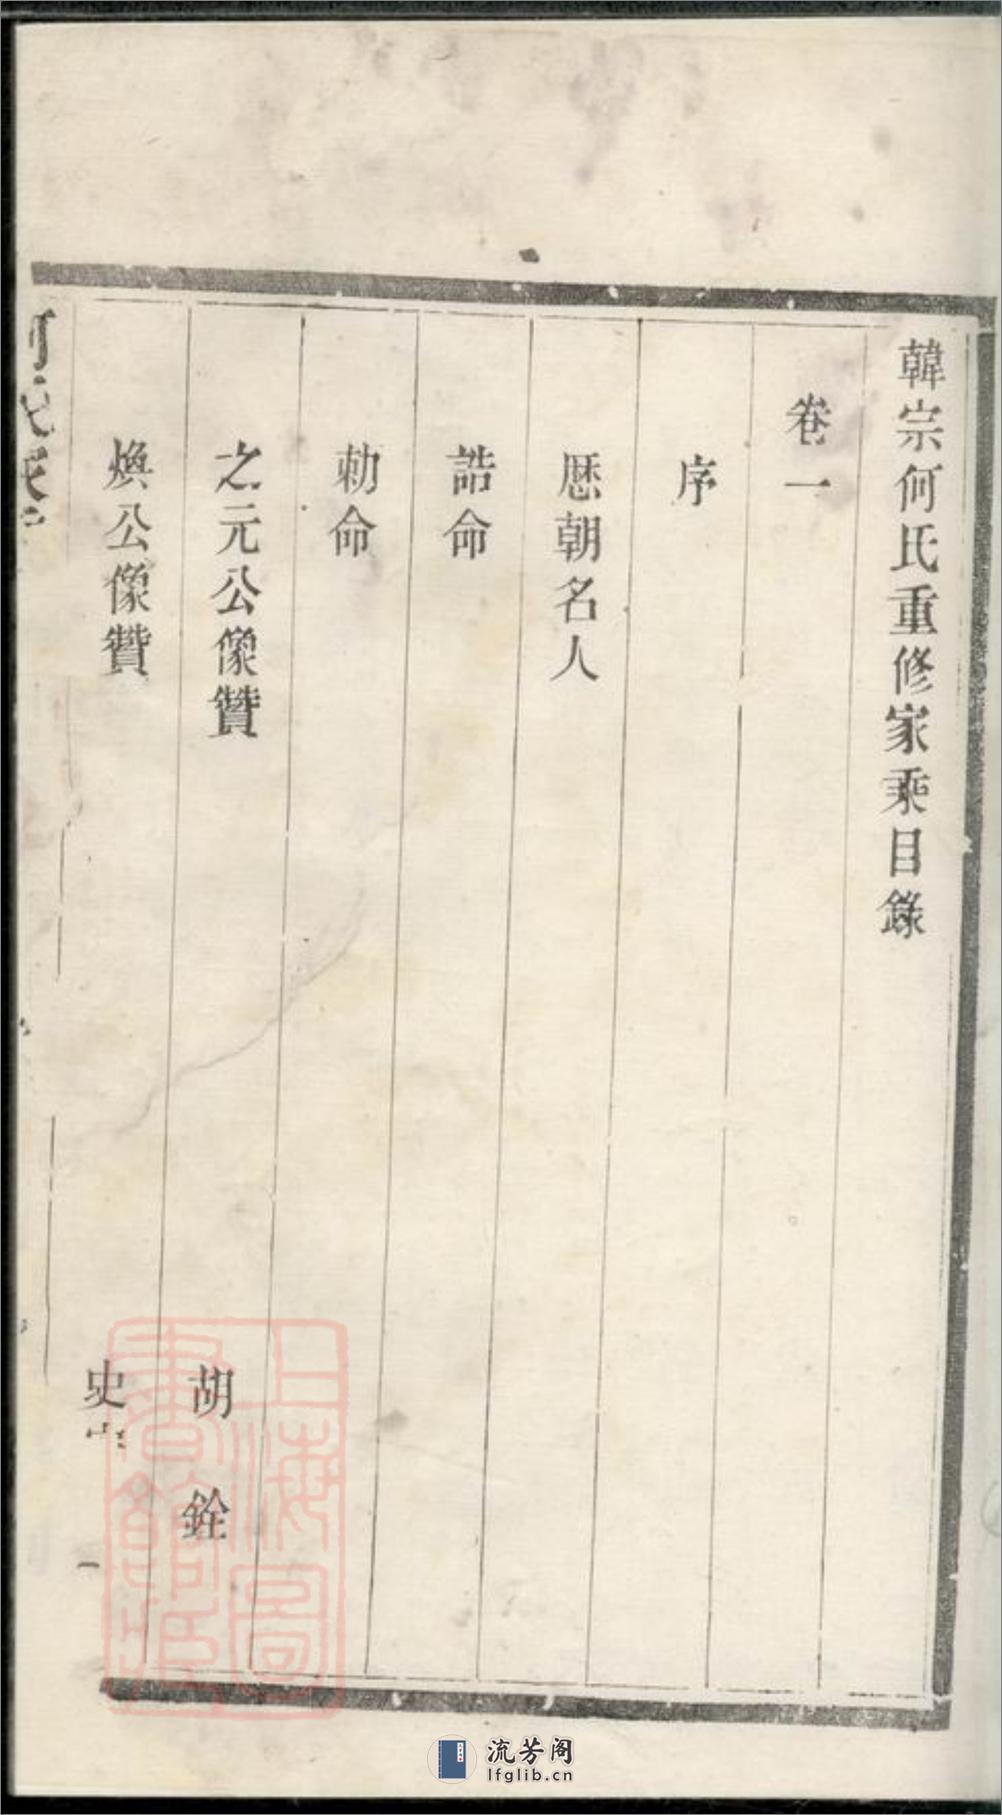 韓宗何氏重修家乘目錄
卷一
序
歷朝名人
誥命
勅命
之元公像贊 胡銓
煥公像贊 史
何氏家
上海圖書館藏
流芳阁
lfglib.cn